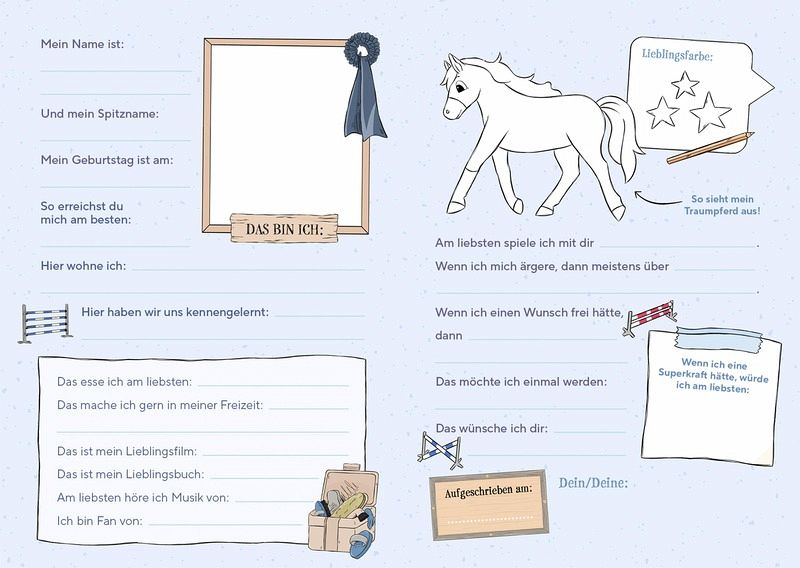 Mein Name ist:
Und mein Spitzname:
Mein Geburtstag ist am:
So erreichst du
mich am besten:
DAS BIN ICH:
Hier wohne ich:
Hier haben wir uns kennengelernt:
Das esse ich am liebsten:
Das mache ich gern in meiner Freizeit:
Das ist mein Lieblingsfilm:
Das ist mein Lieblingsbuch:
Am liebsten höre ich Musik von:
Ich bin Fan von:
Lieblingsfarbe:
So sieht mein
Traumpferd aus!
Am liebsten spiele ich mit dir .
Wenn ich mich ärgere, dann meistens über
.
Wenn ich einen Wunsch frei hätte,
dann
.
Das möchte ich einmal werden:
Das wünsche ich dir:
Wenn ich eine
Superkraft hätte, würde
ich am liebsten:
Aufgeschrieben am:
Dein/Deine: